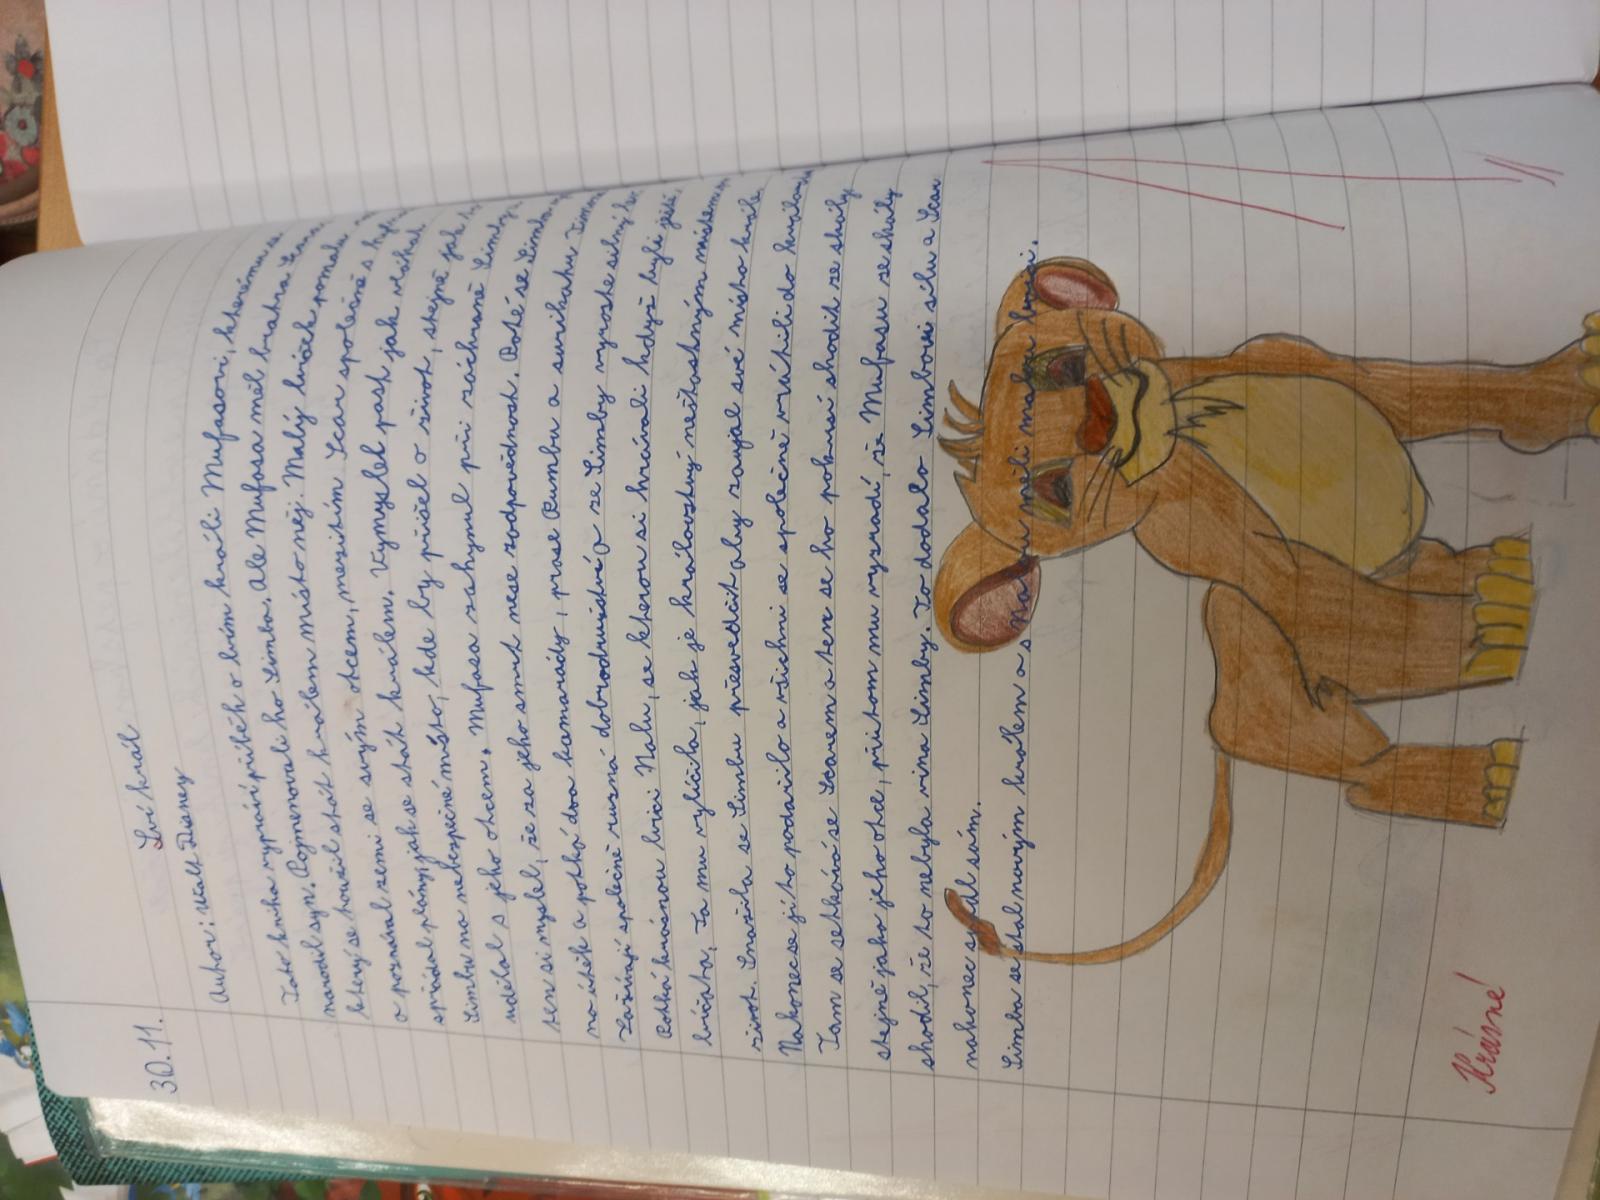 30.11.
Lví král
Autor: Walt Disney
Tato kniha vypráví příběh o lvím králi Mufasovi, kterému se
narodil syn. Pojmenovali ho Simba. Ale Mufasa měl bratra Scara,
který se toužil stát králem místo něj. Malý lvíček pomalu
a poznával zemi se svým otcem, mezitím Scar společně s
spřádal plány, jak se stát králem. Vymyslel past jak vlákat
Simbu na nebezpečné místo, kde by přišel o život, stejně jak
udělal s jeho otcem. Mufasa zahynul při záchraně Simby a
ten si myslel, že za jeho smrt nese zodpovědnost. Poté se Simba
na útěk a potká dva kamarády, prase Pumbu a surikatu Timona
Zažívají společně různá dobrodružství a ze Simby vyroste silný lev.
Potká krásnou lvici Nalu, se kterou si hrávali když byli ještě
lvíčata. Ta mu vylíčila, jak je království nešťastným místem
život. Snažila se Simbu přesvědčit aby zaujal své místo krále.
Nakonec se jí to podařilo a všichni se společně vrátili do království
Tam se setkává se Scarem a ten se ho pokusí shodit ze skály
stejně jako jeho otce, přitom mu vyzradí, že Mufasu ze skály
shodil, že to nebyla vina Simby. To dodalo Simbovi sílu a Scar
nakonec spadl sám.
Simba se stal novým králem a s Nalou měli malou lvici.
Krásné